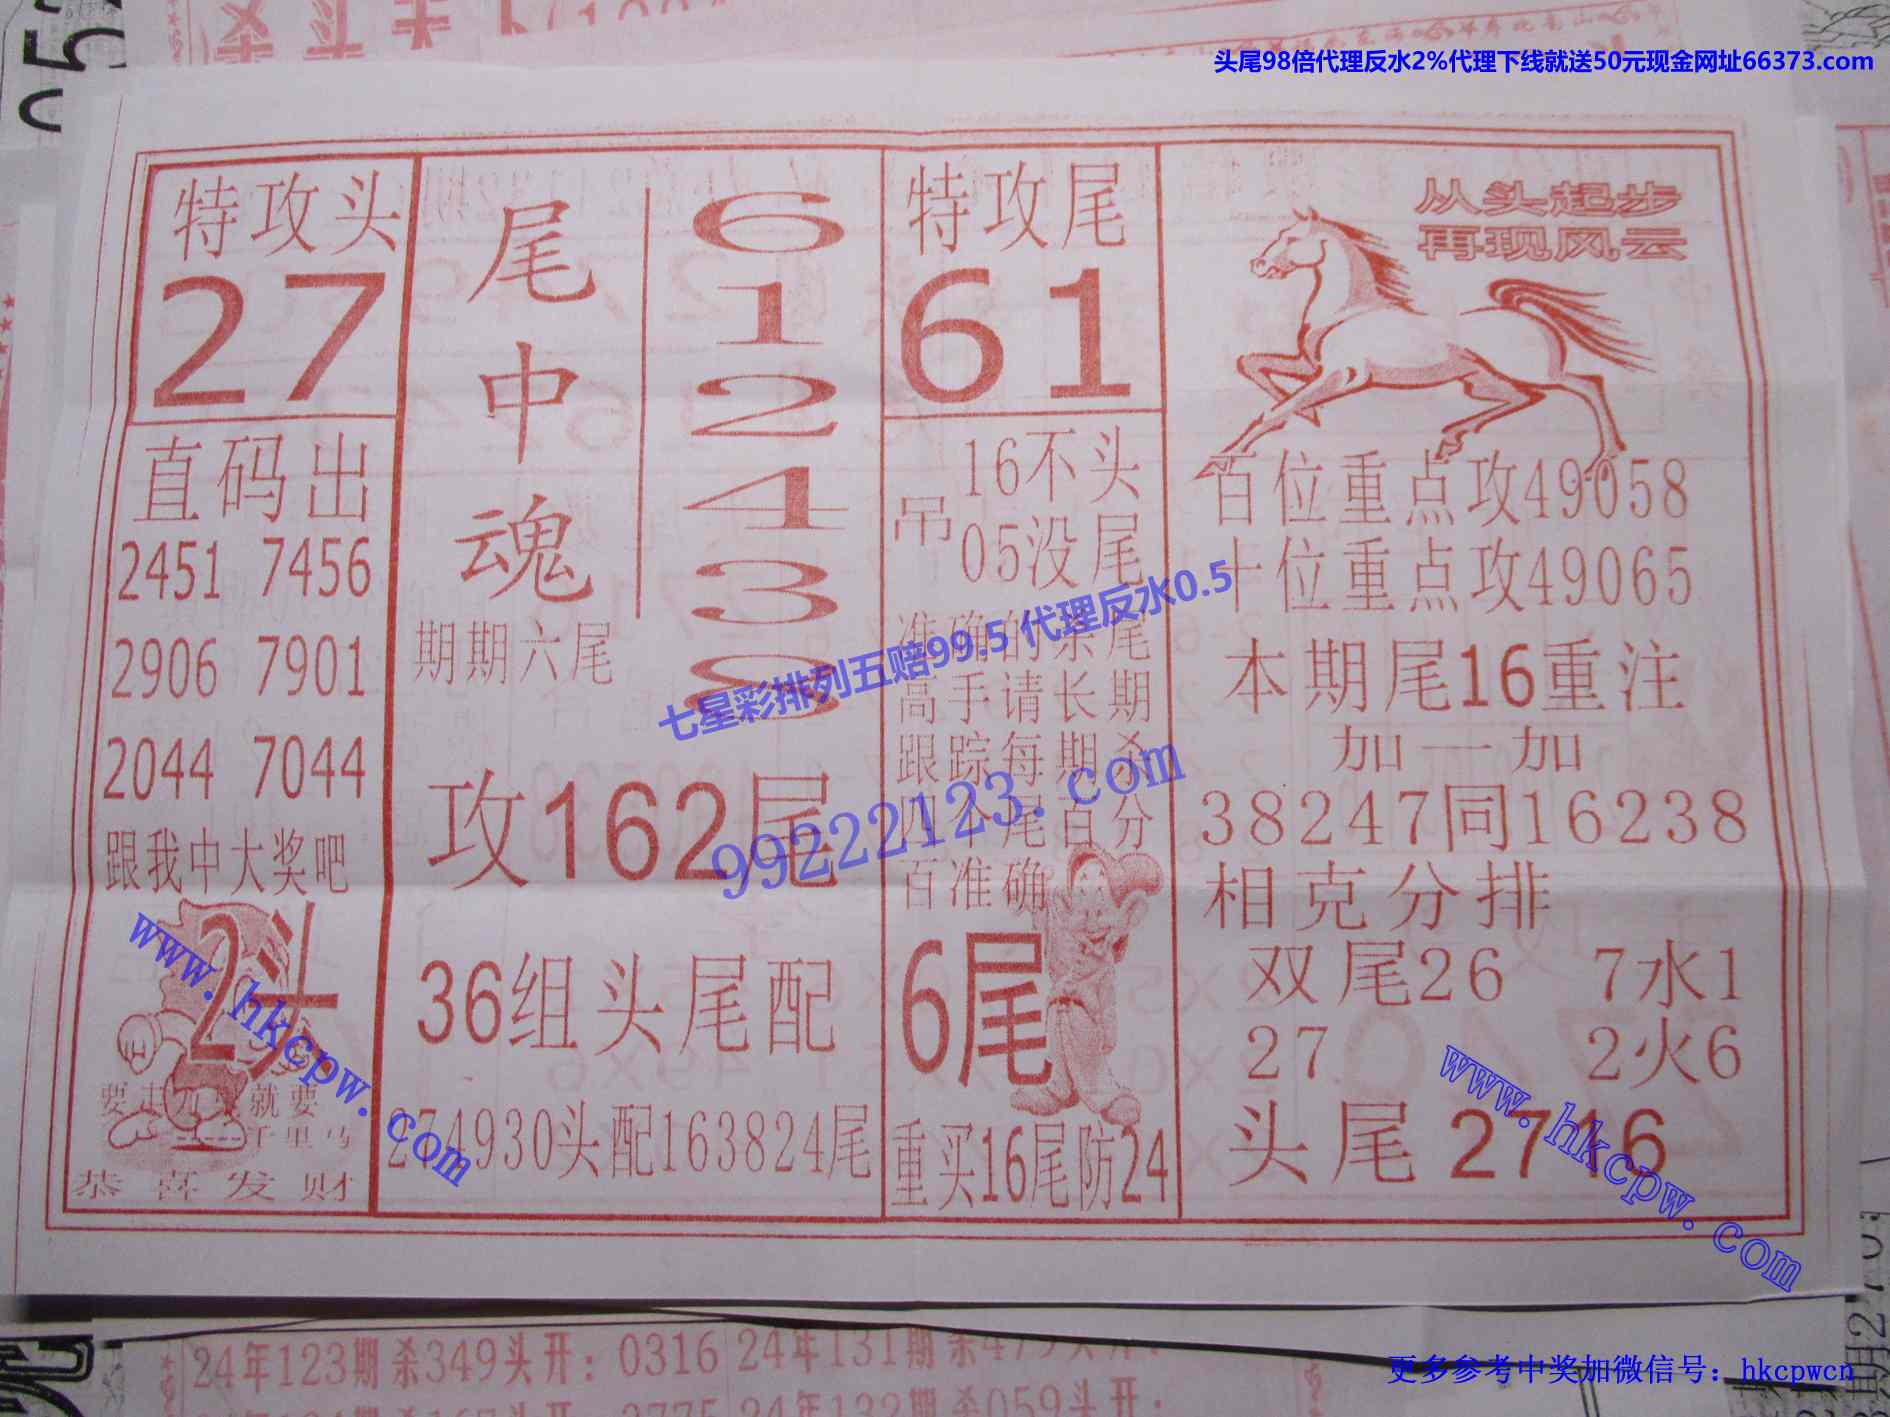 头尾98倍代理反水2%代理下线就送50元现金网址66373.com
特攻头
27
直码出
2451 7456
2906 7901
2044 7044
跟我中大奖吧
2头
要
就要
千里马
恭喜发财
尾中魂
6
1
2
4
3
8
期期六尾
攻162尾
36组头尾配
274930头配163824尾
特攻尾
61
吊
16不头
05没尾
准确的杀尾
高手请长期
跟踪每期杀
四个尾百分
百准确
6尾
重买16尾防24
从头起步
再现风云
百位重点攻49058
十位重点攻49065
本期尾16重注
加一加
38247同16238
相克分排
双尾26 7水1
27 2火6
头尾2716
七星彩排列五赔99.5 代理反水0.5
99222123.com
www.hkcpw.com
www.hkcpw.com
24年123期杀349头开：0316 24年131期杀479头开：
2775 24年132期杀059头开：
更多参考中奖加微信号：hkcpwcn